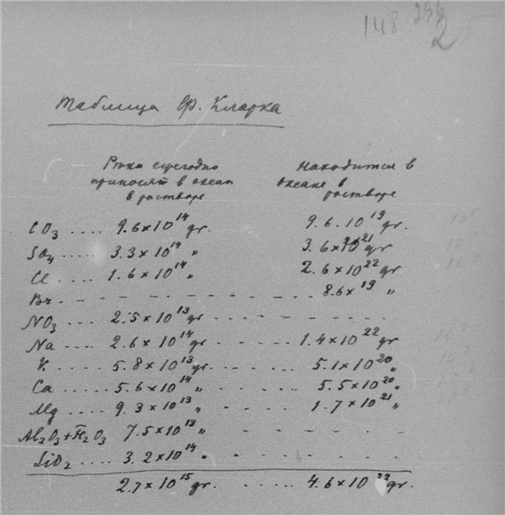 148 2
Таблица Ф. Кларка
Реки ежегодно Находится в
приносят в океан океане в
в растворе растворе
CO3 .... 9.6×10^14 gr. 9.6.10^19 gr.
SO4 .... 3.3×10^14 " 3.6×10^21 gr
Cl .... 1.6×10^14 " 2.6×10^22 gr
Br - - - - - - - - - 8.6×10^19 "
NO3 .... 2.5×10^13 gr - - - - -
Na .... 2.6×10^14 gr - - - - 1.4×10^22 gr
K .... 5.8×10^13 gr. - - - - 5.1×10^20 "
Ca .... 5.6×10^14 " - - - - 5.5×10^20 "
Mg .... 9.3×10^13 " - - - - 1.7×10^21 "
Al2O3+Fe2O3 7.5×10^13 " - - - - -
SiO2 .... 3.2×10^14 " - - - - -
2.7×10^15 gr. ..... 4.6×10^22 gr.